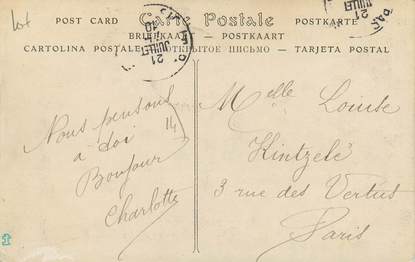 Lot
POST CARD Carte Postale POSTKARTE
BRIEFKAART — POSTKAART
CARTOLINA POSTALE ОТКРЫТОЕ ПИСЬМО — TARJETA POSTAL
21
JUILLET
21
JUILLET
Nous pensons
a toi
Bonjour
Charlotte
Melle Louise
Kintzelé
3 rue des Vertus
Paris